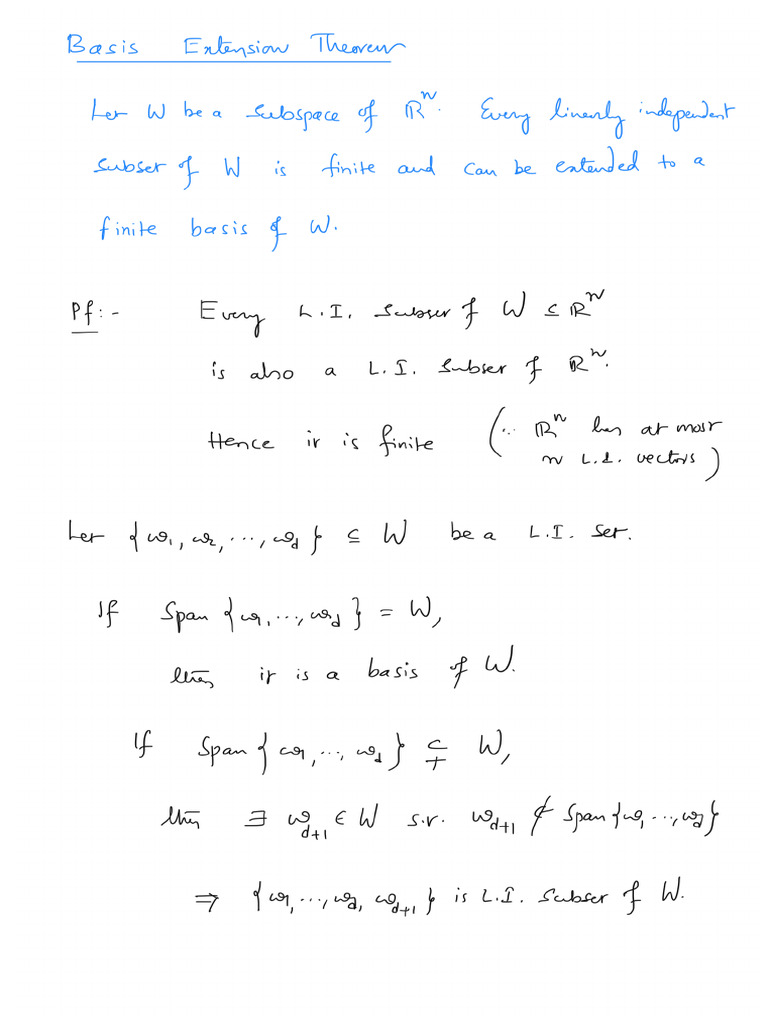 Basis Extension Theorem
Let W be a subspace of ℝⁿ. Every linearly independent
subset of W is finite and can be extended to a
finite basis of W.
Pf:- Every L.I. subset of W ⊆ ℝⁿ
is also a L.I. subset of ℝⁿ.
Hence it is finite (∵ ℝⁿ has at most
n L.I. vectors)
Let {w₁, w₂, ..., w_d} ⊆ W be a L.I. set.
If Span {w₁, ..., w_d} = W,
then it is a basis of W.
If Span {w₁, ..., w_d} ⊊ W,
then ∃ w_{d+1} ∈ W s.t. w_{d+1} ∉ Span {w₁, ..., w_d}
⇒ {w₁, ..., w_d, w_{d+1}} is L.I. subset of W.